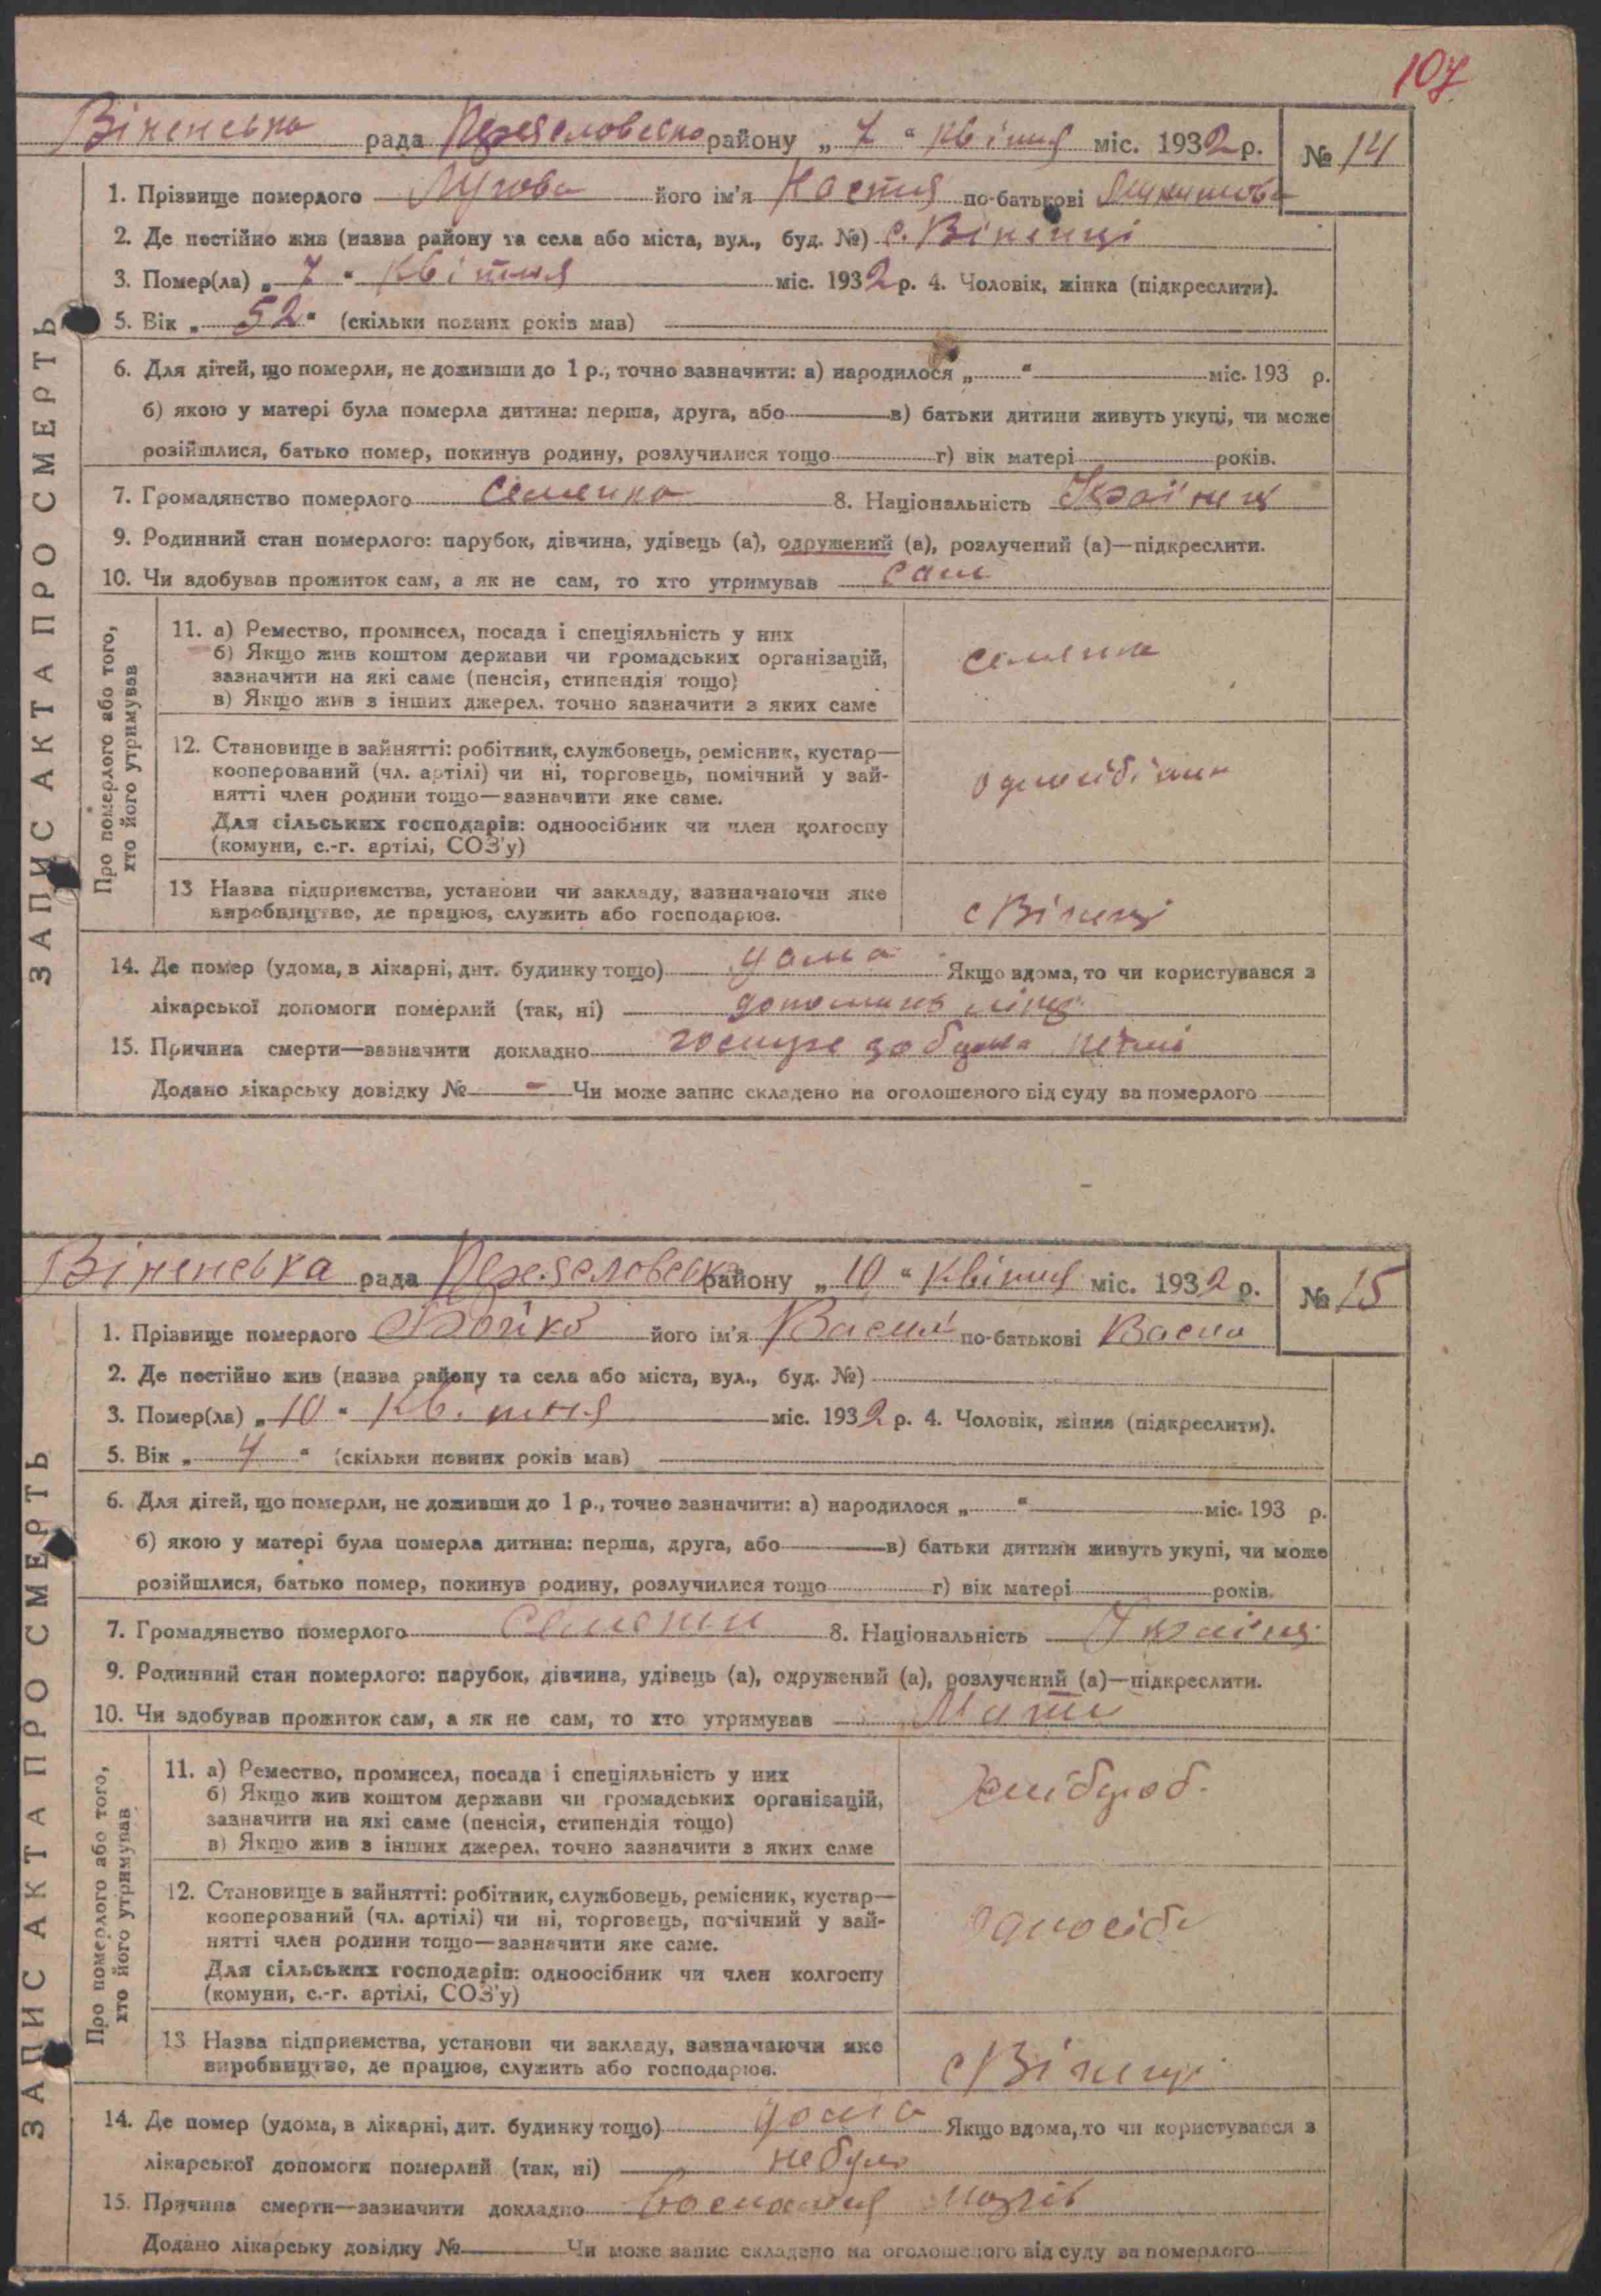 107
Віненська рада району „ 7 “ квітня міс. 1932 р. № 14
1. Прізвище померлого його ім’я Настя по-батькові
2. Де постійно жив (назва району та села або міста, вул., буд. №) с. Вінинці
3. Помер(ла) „ 7 “ квітня міс. 1932 р. 4. Чоловік, жінка (підкреслити).
5. Вік „ 52 “ (скільки повних років мав)
6. Для дітей, що померли, не доживши до 1 р., точно зазначити: а) народилося „ “ міс. 193 р.
б) якою у матері була померла дитина: перша, друга, або в) батьки дитини живуть укупі, чи може
розійшлися, батько помер, покинув родину, розлучилися тощо г) вік матері років.
7. Громадянство померлого селянка 8. Національність
9. Родинний стан померлого: парубок, дівчина, удівець (а), одружений (а), розлучений (а)—підкреслити.
10. Чи здобував прожиток сам, а як не сам, то хто утримував сам
ЗАПИС АКТА ПРО СМЕРТЬ
Про померлого або того,
хто його утримував
11. а) Ремество, промисел, посада і спеціяльність у них
б) Якщо жив коштом держави чи громадських організацій,
зазначити на які саме (пенсія, стипендія тощо)
в) Якщо жив з інших джерел, точно зазначити з яких саме
селянка
12. Становище в зайнятті: робітник, службовець, ремісник, кустар—
кооперований (чл. артілі) чи ні, торговець, помічний у зай-
нятті член родини тощо—зазначити яке саме.
Для сільських господарів: одноосібник чи член колгоспу
(комуни, с.-г. артілі, СОЗ’у)
13 Назва підприємства, установи чи закладу, зазначаючи яке
виробництво, де працює, служить або господарює.
с
14. Де помер (удома, в лікарні, дит. будинку тощо) дома Якщо вдома, то чи користувався з
лікарської допомоги померлий (так, ні)
15. Причина смерти—зазначити докладно
Додано лікарську довідку № - Чи може запис складено на оголошеного від суду за померлого
Віненська рада району „ 10 “ квітня міс. 1932 р. № 15
1. Прізвище померлого Бойко його ім’я Василь по-батькові
2. Де постійно жив (назва району та села або міста, вул., буд. №)
3. Помер(ла) „ 10 “ квітня міс. 1932 р. 4. Чоловік, жінка (підкреслити).
5. Вік „ 4 “ (скільки повних років мав)
6. Для дітей, що померли, не доживши до 1 р., точно зазначити: а) народилося „ “ міс. 193 р.
б) якою у матері була померла дитина: перша, друга, або в) батьки дитини живуть укупі, чи може
розійшлися, батько помер, покинув родину, розлучилися тощо г) вік матері років.
7. Громадянство померлого 8. Національність
9. Родинний стан померлого: парубок, дівчина, удівець (а), одружений (а), розлучений (а)—підкреслити.
10. Чи здобував прожиток сам, а як не сам, то хто утримував Мати
ЗАПИС АКТА ПРО СМЕРТЬ
Про померлого або того,
хто його утримував
11. а) Ремество, промисел, посада і спеціяльність у них
б) Якщо жив коштом держави чи громадських організацій,
зазначити на які саме (пенсія, стипендія тощо)
в) Якщо жив з інших джерел, точно зазначити з яких саме
хлібороб.
12. Становище в зайнятті: робітник, службовець, ремісник, кустар—
кооперований (чл. артілі) чи ні, торговець, помічний у зай-
нятті член родини тощо—зазначити яке саме.
Для сільських господарів: одноосібник чи член колгоспу
(комуни, с.-г. артілі, СОЗ’у)
13 Назва підприємства, установи чи закладу, зазначаючи яке
виробництво, де працює, служить або господарює.
с
14. Де помер (удома, в лікарні, дит. будинку тощо) дома Якщо вдома, то чи користувався з
лікарської допомоги померлий (так, ні) не було
15. Причина смерти—зазначити докладно
Додано лікарську довідку № Чи може запис складено на оголошеного від суду за померлого